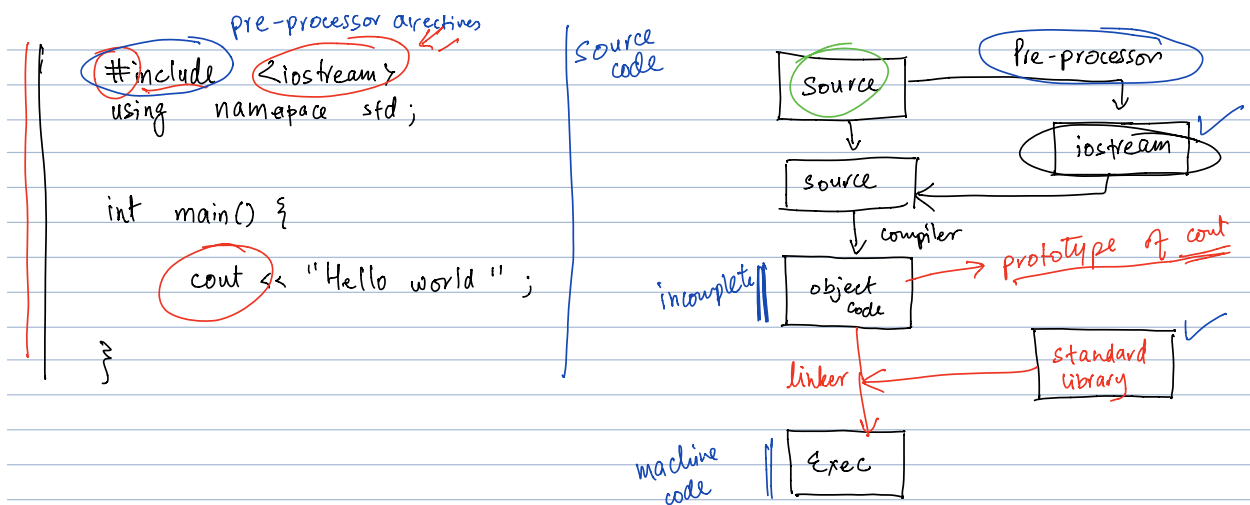 pre-processor directives
#include <iostream>
using namepace std;
int main() {
cout << "Hello world";
}
source
code
Source
Pre-processor
iostream
source
compiler
incomplete
object
code
prototype of cout
linker
standard
library
machine
code
Exec